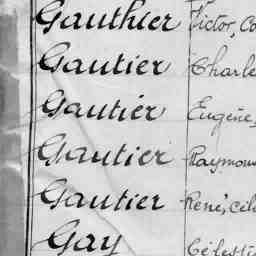 Gauthier Victor, Co
Gautier Charle
Gautier Eugène,
Gautier Raymon
Gautier René, cél
Gay Célesti